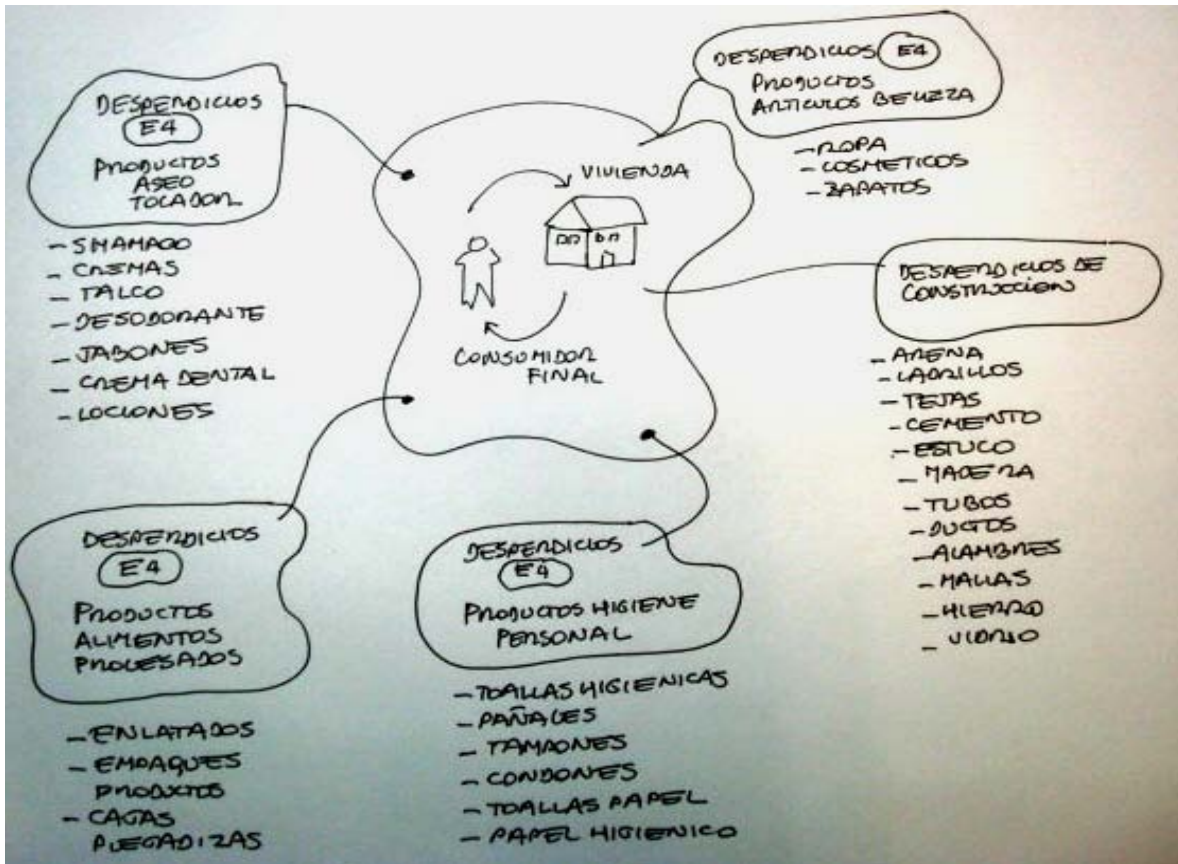 DESPERDICIOS
E4
PRODUCTOS
ASEO
TOCADOR
- SHAMAGO
- CREMAS
- TALCO
- DESODORANTE
- JABONES
- CREMA DENTAL
- LOCIONES
DESPERDICIOS E4
PRODUCTOS
ARTICULOS BELLEZA
- ROPA
- COSMETICOS
- ZAPATOS
VIVIENDA
CONSUMIDOR
FINAL
DESPERDICIOS DE
CONSTRUCCION
- ARENA
- LADRILLOS
- TEJAS
- CEMENTO
- ESTUCO
- MADERA
- TUBOS
- DUCTOS
- ALAMBRES
- MALLAS
- HIERRO
- VIDRIO
DESPERDICIOS
E4
PRODUCTOS
ALIMENTOS
PROCESADOS
- ENLATADOS
- EMPAQUES
PRODUCTOS
- CAJAS
PLEGADIZAS
DESPERDICIOS
E4
PRODUCTOS HIGIENE
PERSONAL
- TOALLAS HIGIENICAS
- PAÑALES
- TAMPONES
- CONDONES
- TOALLAS PAPEL
- PAPEL HIGIENICO